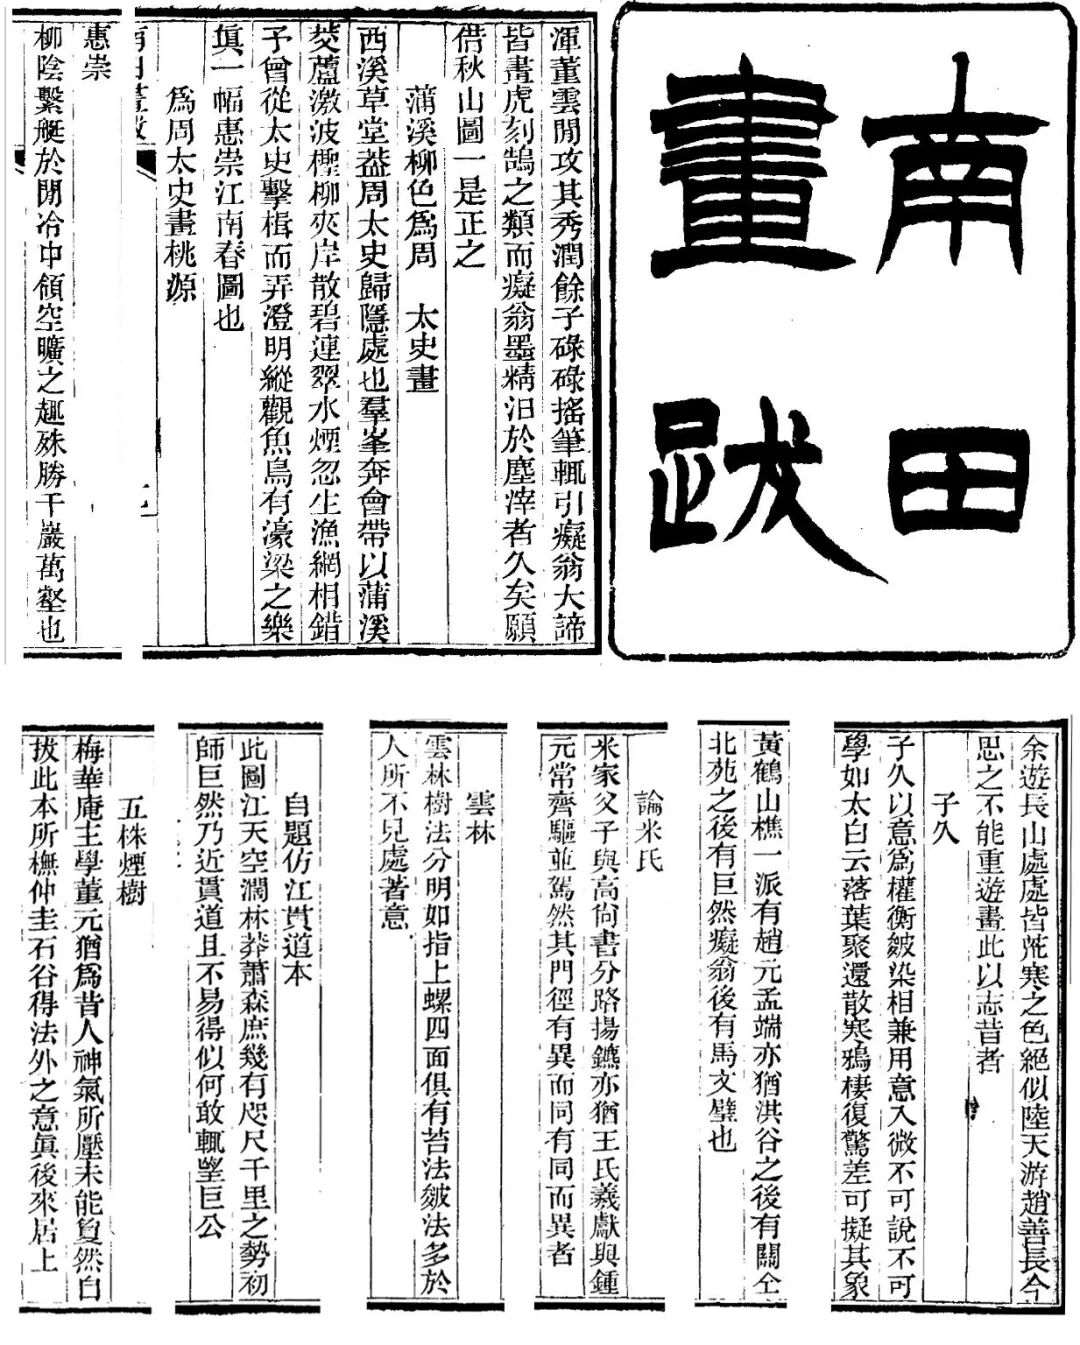 南田
畫跋
渾董雲閒攻其秀潤餘子碌碌搖筆輒引癡翁大諦
皆畫虎刻鵠之類而癡翁墨精汨於塵滓者久矣願
借秋山圖一是正之
蒲溪柳色爲周　太史畫
西溪草堂葢周太史歸隱處也羣峯奔會帶以蒲溪
茭蘆激波檉柳夾岸散碧連翠水煙忽生漁網相錯
予曾從太史擊楫而弄澄明縱觀魚鳥有濠梁之樂
眞一幅惠崇江南春圖也
爲周太史畫桃源
南田畫跋
惠崇
柳陰繫艇於閒冷中領空曠之趣殊勝千巖萬壑也
余遊長山處處皆荒寒之色絕似陸天游趙善長今
思之不能重遊畫此以志昔者
子久
子久以意爲權衡皴染相兼用意入微不可說不可
學如太白云落葉聚還散寒鴉棲復驚差可擬其象
黃鶴山樵一派有趙元孟端亦猶洪谷之後有關仝
北苑之後有巨然癡翁後有馬文璧也
論米氏
米家父子與高尙書分路揚鑣亦猶王氏羲獻與鍾
元常齊驅並駕然其門徑有異而同有同而異者
雲林
雲林樹法分明如指上螺四面俱有苔法皴法多於
人所不見處著意
自題仿江貫道本
此圖江天空濶林莽蕭森庶幾有咫尺千里之勢初
師巨然乃近貫道且不易得似何敢輒望巨公
五株煙樹
梅華庵主學董元猶爲昔人神氣所壓未能敻然自
拔此本所橅仲圭石谷得法外之意眞後來居上